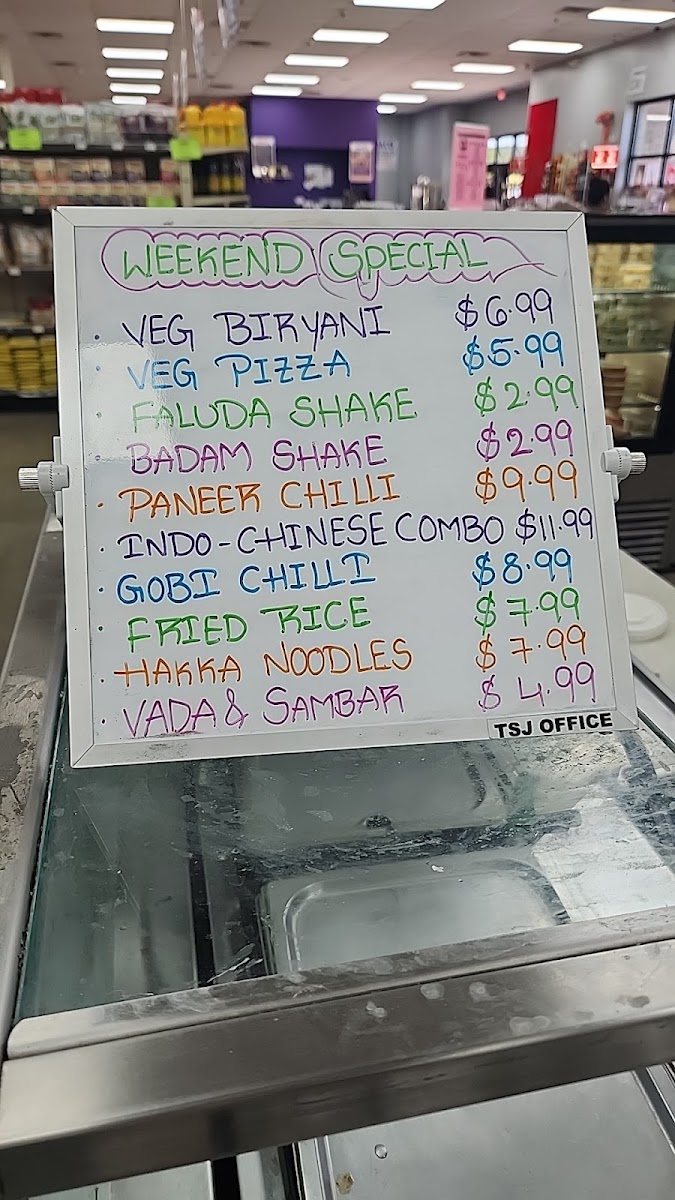 WEEKEND SPECIAL
· VEG BIRYANI $6.99
· VEG PIZZA $5.99
· FALUDA SHAKE $2.99
· BADAM SHAKE $2.99
· PANEER CHILLI $9.99
· INDO-CHINESE COMBO $11.99
· GOBI CHILLI $8.99
· FRIED RICE $7.99
· HAKKA NOODLES $7.99
· VADA & SAMBAR $4.99
TSJ OFFICE